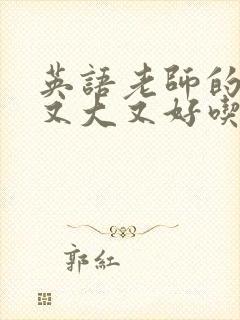 英語老師的
又大又好喫
郭紅